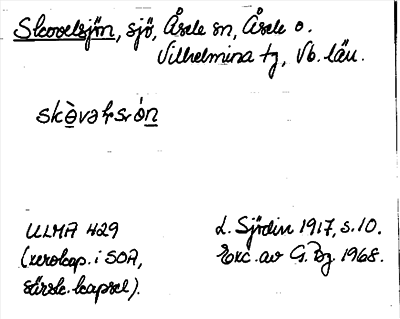 Skovelsjön, sjö, Åsele sn, Åsele o.
Vilhelmina tg, Vb. län.
ULMA 429
(xerokop. i SOA,
särsk. kapsel).
L. Sjödin 1917, s. 10.
Exc. av G. Bg 1968.